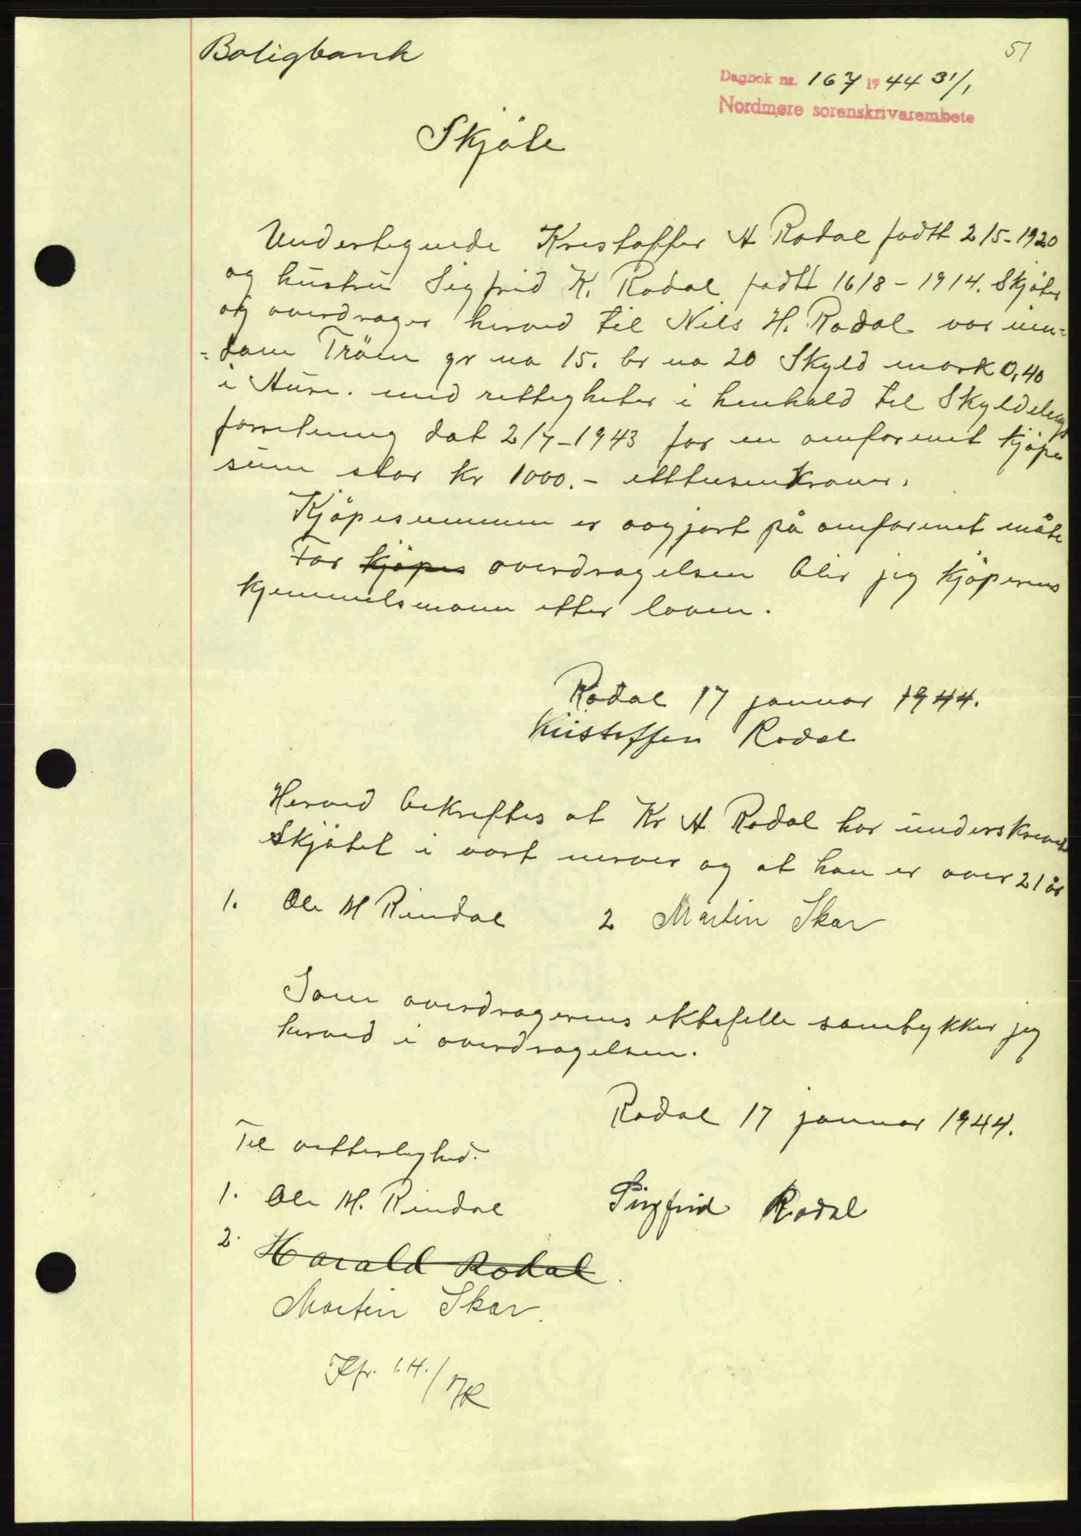 Boligbank
51
Dagbok nr. 167 1944 31/1
Nordmøre sorenskrivarembete
Skjöte
Undertegnede Kristoffer A Rodal født 2/5-1920
og hustru Sigfrid K. Rodal født 16/8-1914. Skjöter
og overdrager herved til Nils H. Rodal vor eien-
=dom Tröen gr no 15. br no 20 Skyld mark 0,40
i Aure. med rettigheter i henhold til Skylddelings
forretning dat 2/7-1943 for en omforenet kjöpe
sum stor kr 1000.- etttusenkroner.
Kjöpesummen er avgjort på omforenet måte
For kjöpes overdragelsen blir jeg kjöperens
hjemmelsmann etter loven.
Rodal 17 januar 1944.
Kristoffer Rodal
Herved bekreftes at Kr A. Rodal har underskrevet
Skjötet i vort nerver og at han er over 21 år
1. Ole M Rindal 2 Martin Skar
Som overdragerens ektefelle samtykker jeg
herved i overdragelsen.
Rodal 17 januar 1944.
Til vitterlighed.
1. Ole M. Rindal Sigfrid Rodal
2. Harald Rodal
Martin Skar.